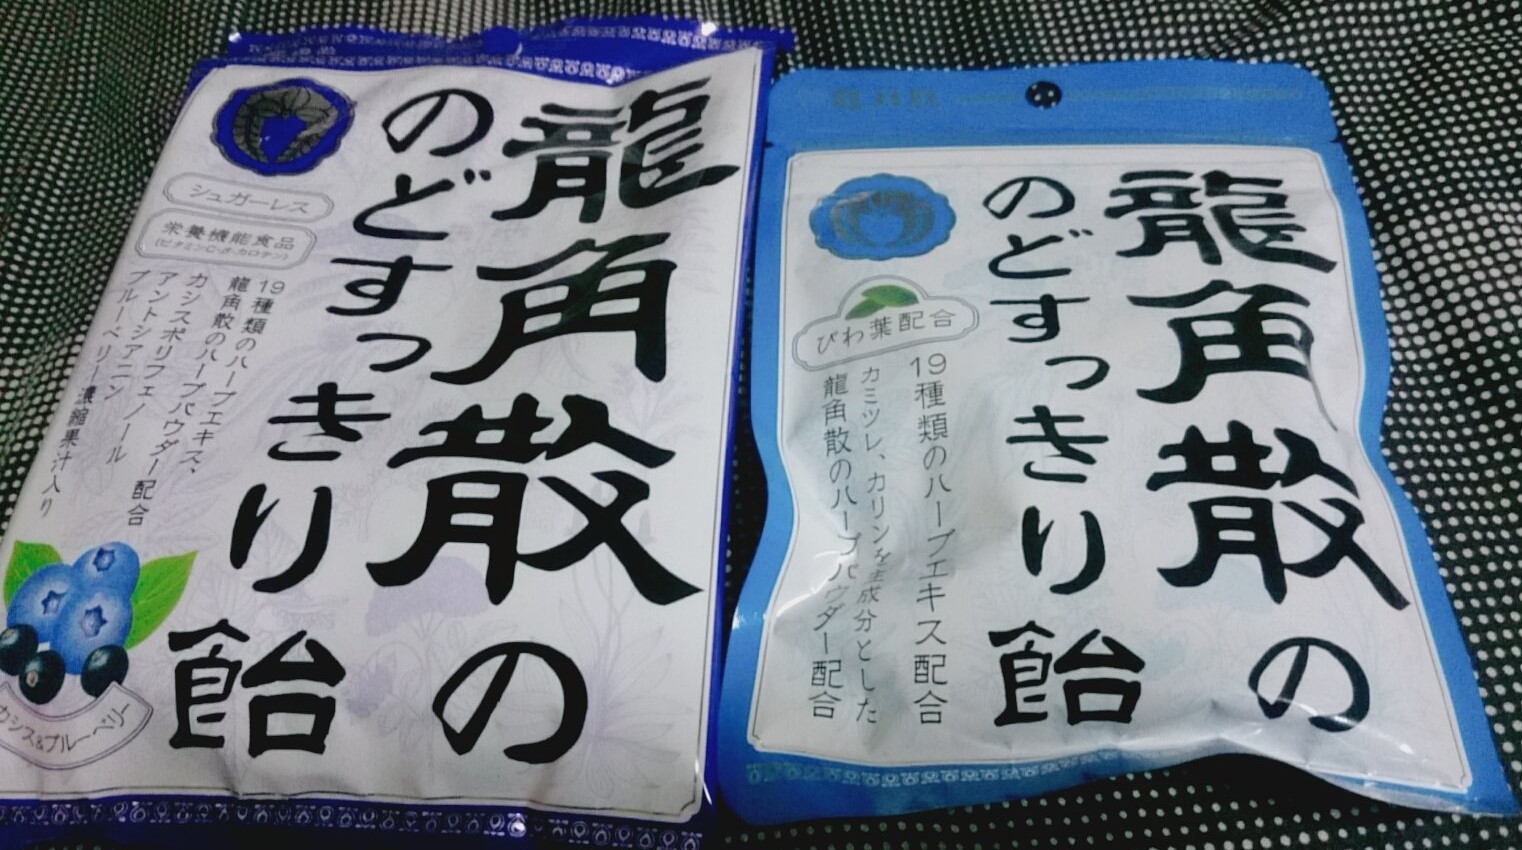 龍角散の
のどすっきり飴
シュガーレス
栄養機能食品
(ビタミンC・β-カロテン)
19種類のハーブエキス、
龍角散のハーブパウダー配合
カシスポリフェノール
アントシアニン
ブルーベリー濃縮果汁入り
カシス&ブルーベリー
龍角散の
のどすっきり飴
びわ葉配合
19種類のハーブエキス配合
カミツレ、カリンを主成分とした
龍角散のハーブパウダー配合